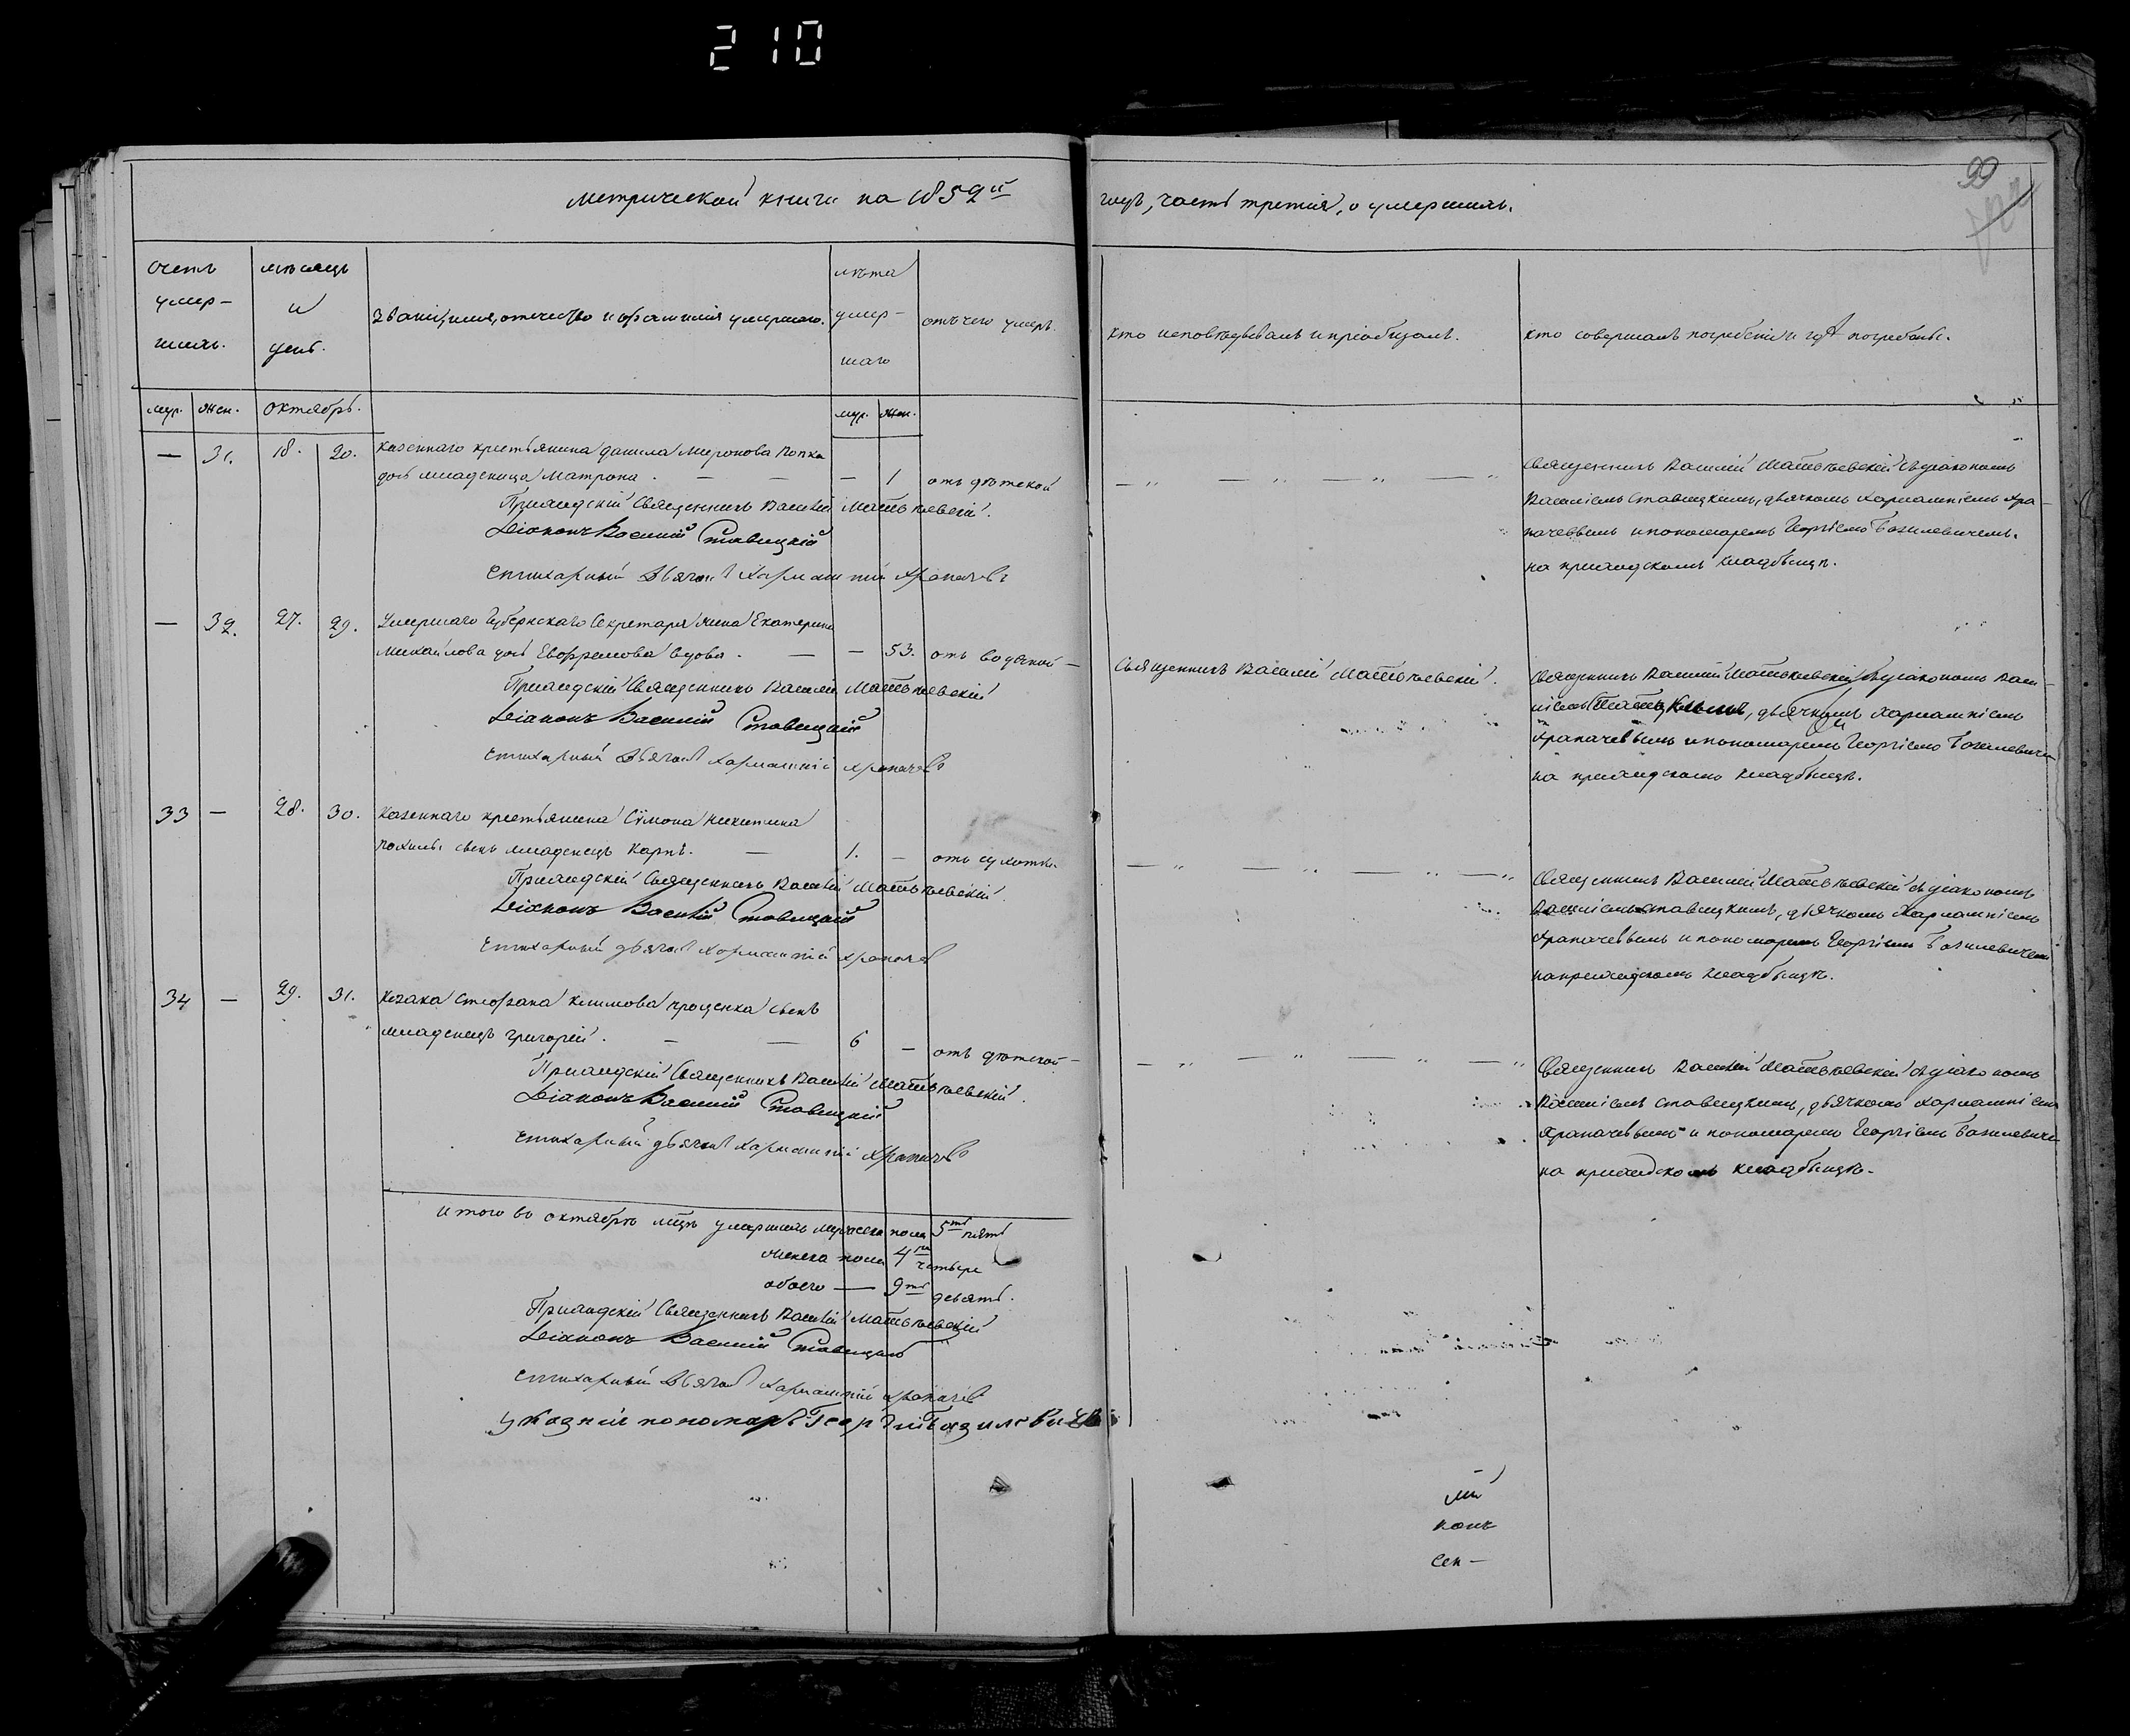 210
метрической книги на 1852й
годъ, часть третія, о умершихъ.
99
счетъ умер-шихъ.
мѣсяцъ и день.
Званіе, имя, отечество и фамилія умершаго.
лѣта умер-шаго
отъ чего умеръ.
кто исповѣдывалъ и пріобщалъ.
кто совершалъ погребеніе и гдѣ погребены.
муж. жен. октябрь. муж. жен.
— 31. 18. 20. Казеннаго крестьянина Данила Миронова Попка
дочь младеница Матрона. — — — 1 отъ дѣтской
Приходскій Священникъ Василій Матвѣевскій.
Діаконъ Василій Ставицкій
Стихарный Дьячокъ Харлампій Храпачовъ
Священникъ Василій Матвѣевскій съ діакономъ
Василіемъ Ставицкимъ, дьячкомъ Харлампіемъ Хра-
пачевымъ и пономаремъ Георгіемъ Базилевичемъ.
на приходскомъ кладбищѣ.
— 32. 27. 29. Умершаго Губернскаго Секретаря жена Екатерина
Михайлова дочь Евфремова вдова. — — 53. отъ водяной —
Приходскій Священникъ Василій Матвѣевскій
Діаконъ Василій Ставицкій
Стихарный Дьячокъ Харлампій Храпачовъ
Священникъ Василій Матвѣевскій.
Священникъ Василій Матвѣевскій съ діакономъ Васи-
ліемъ Ставицкимъ, дьячкомъ Харлампіемъ
Храпачевымъ и пономаремъ Георгіемъ Базилевиче
на приходскомъ кладбищѣ.
33 — 28. 30. Казеннаго крестьянина Сѵмона Никитина
сынъ младенецъ Карпъ. — 1. — отъ сухотки.
Приходскій Священникъ Василій Матвѣевскій.
Діаконъ Василій Ставицкій
Стихарный дьячокъ Харлампій Храпачов
Священникъ Василій Матвѣевскій съ діакономъ
Василіемъ Ставицкимъ, дьячкомъ Харлампіемъ
Храпачевымъ и пономаремъ Георгіемъ Базилевичемъ
на приходскомъ кладбищѣ.
34 — 29. 31. Козака Стефана Климова Проценка сынъ
младенецъ Григорій. — — 6 — отъ дѣтской —
Приходскій Священникъ Василій Матвѣевскій.
Діаконъ Василій Ставицкій
Стихарный дьячокъ Харлампій Храпачовъ
Священникъ Василій Матвѣевскій съ діакономъ
Василіемъ Ставицкимъ, дьячкомъ Харлампіемъ
Храпачевымъ и пономаремъ Георгіемъ Базилевиче
на приходскомъ кладбищѣ.
Итого въ октябрѣ мцѣ умершихъ мужеска пола 5ть пять
женска пола 4ре четыре
обоего — 9ть девять.
Приходскій Священникъ Василій Матвѣевскій
Діаконъ Василій Ставицкій
Стихарный Дьячокъ Харлампій Храпачев
Указній пономарь Георгий Базилевичь
конъ
Сек-